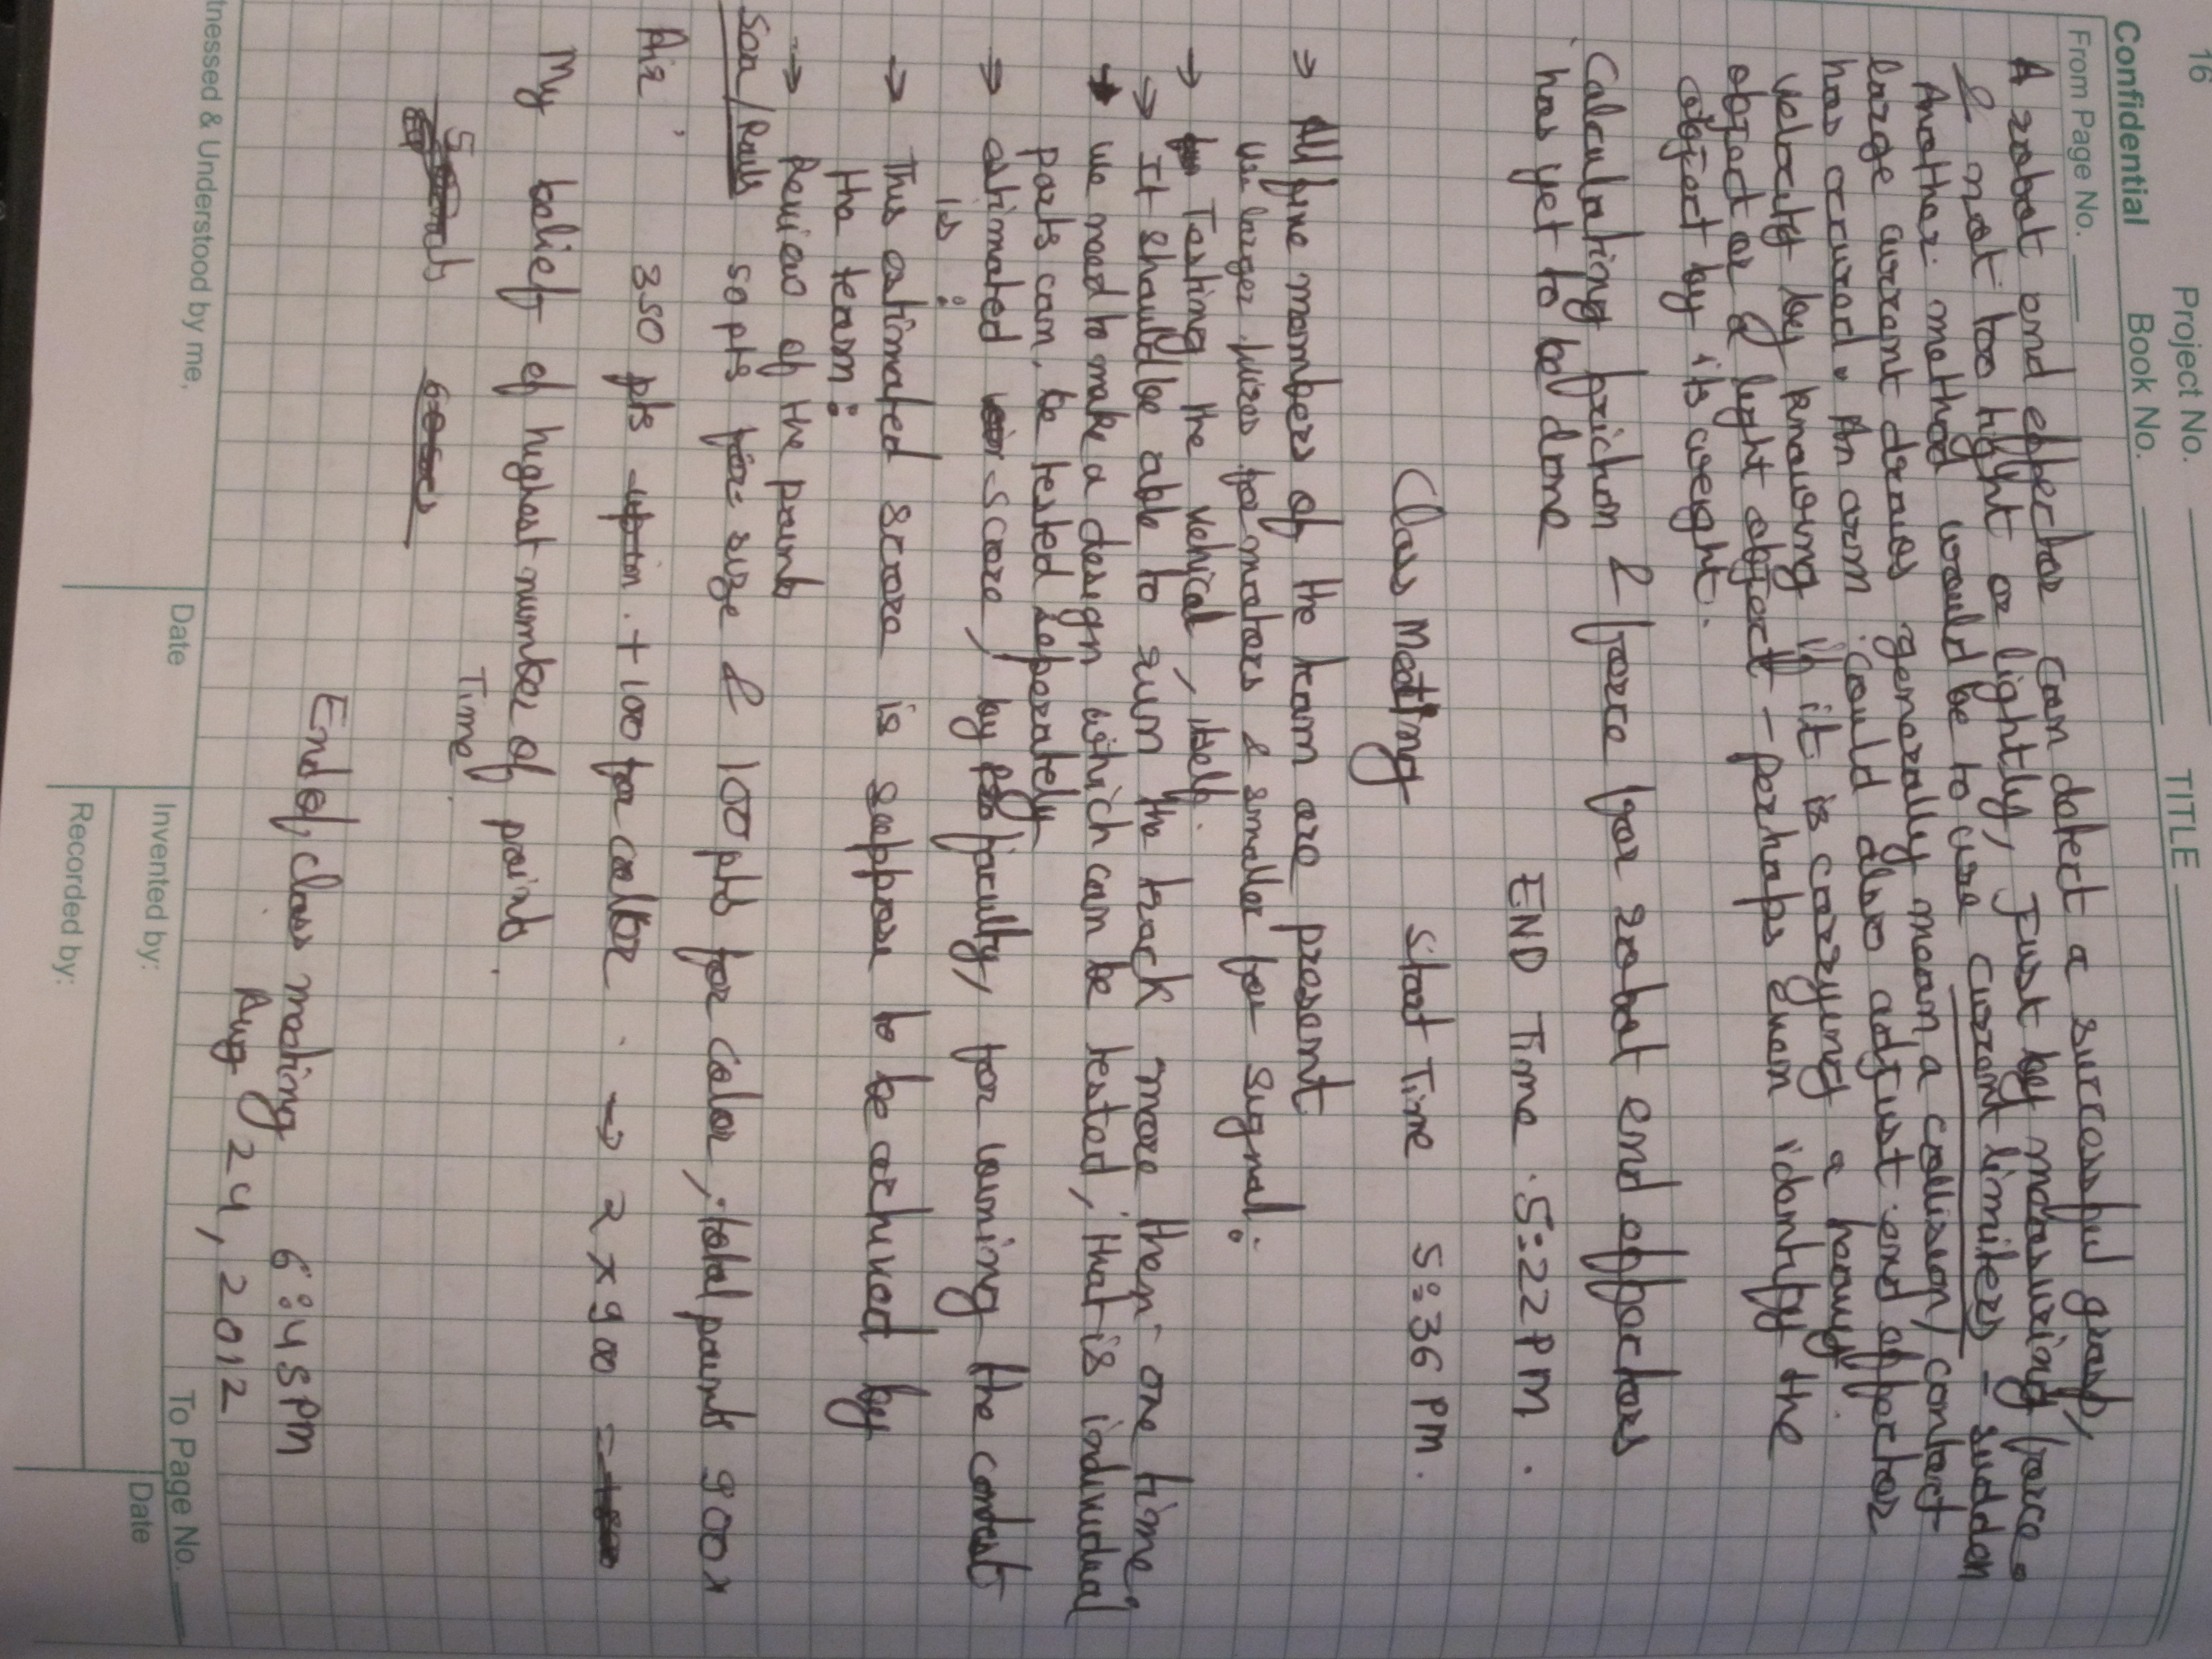 16
Project No.
Confidential
Book No.
TITLE
From Page No.
A robot end effector can detect a successful grasp,
& not too tight or lightly, Just by measuring force.
Another method would be to use current limiters - sudden
large current draws generally mean a collision/contact
has occured. An arm could also adjust end effector
velocity by knowing if it is carrying a heavy
object or a light object - perhaps even identify the
object by its weight.
Calculating friction & force for robot end effectors
has yet to be done
END Time 5:22 PM.
Class Meeting Start Time 5:36 PM.
⇒ All five members of the team are present
Use larger wires for motors & smaller for signal.
→ Testing the vehical, itself.
→ It should be able to run the track "more then" one time"
→ we need to make a design which can be tested, that is individual
parts can, be tested seperately
→ estimated score, by faculty, for winning the contest
is:
→ This estimated score is suppose to be achived by
the team:
→ Review of the points
Sea/Rails 50 pts for size & 100 pts for color, total points 900x
Air 350 pts + 100 for color → 2 x 900
My belief of highest number of points
Time
End of, class meeting 6:45 PM
Aug 24, 2012
tnessed & Understood by me,
Date
Invented by:
Recorded by:
To Page No.
Date